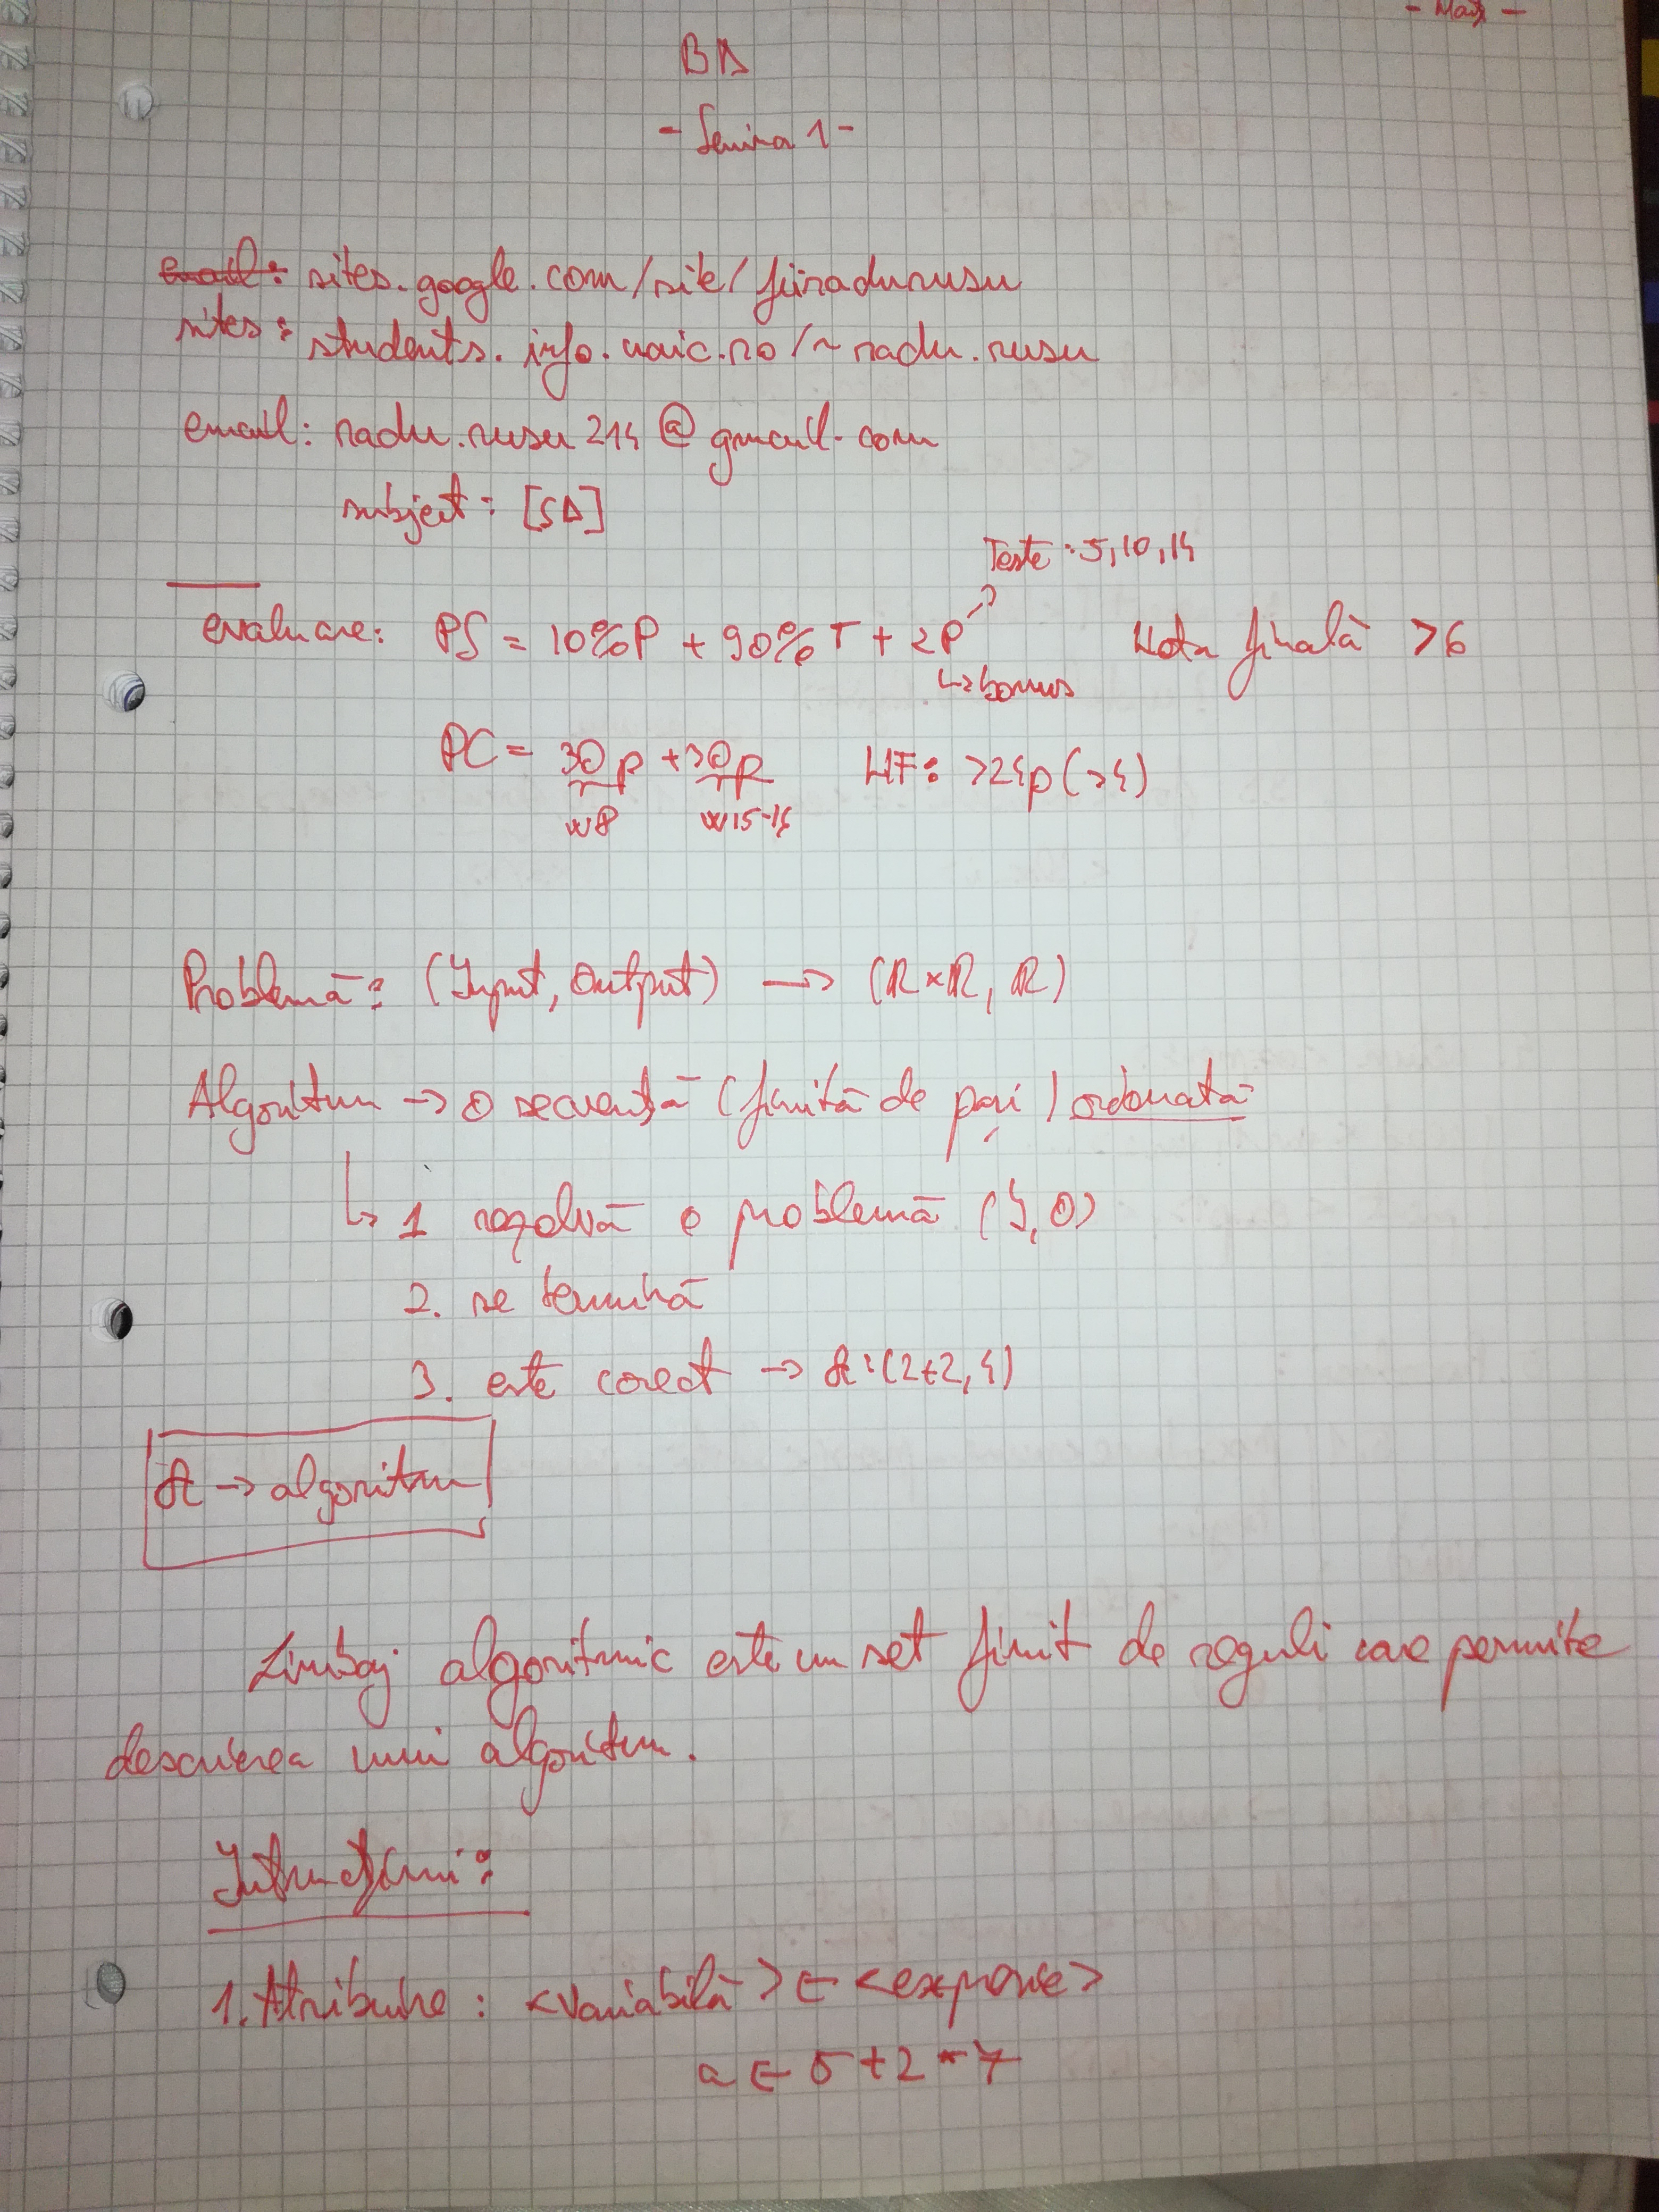 BA
- Semina 1 -
email: sites.google.com/site/fiiradurusu
sites: students.info.uaic.ro/~radu.rusu
email: radu.rusu214@gmail.com
subject: [SA]
Teste: 5,10,14
evaluare: PS = 10%P + 90%T + 2P Nota finală >6
↳ bonus
PC = 30p + 30p NF: >24p (>4)
w8 w15-16
Problemă: (Input, Output) → (R×R, R)
Algoritm → o secvență (finită de pași) ordonată
↳ 1 rezolvă o problemă (I, O)
2. se termină
3. este corect → A:(2+2,4)
A → algoritm
Limbaj algoritmic este un set finit de reguli care permite
descrierea unui algoritm.
Intrucțiuni:
1. Atribuire: <variabilă> ← <expresie>
a ← 5+2*7